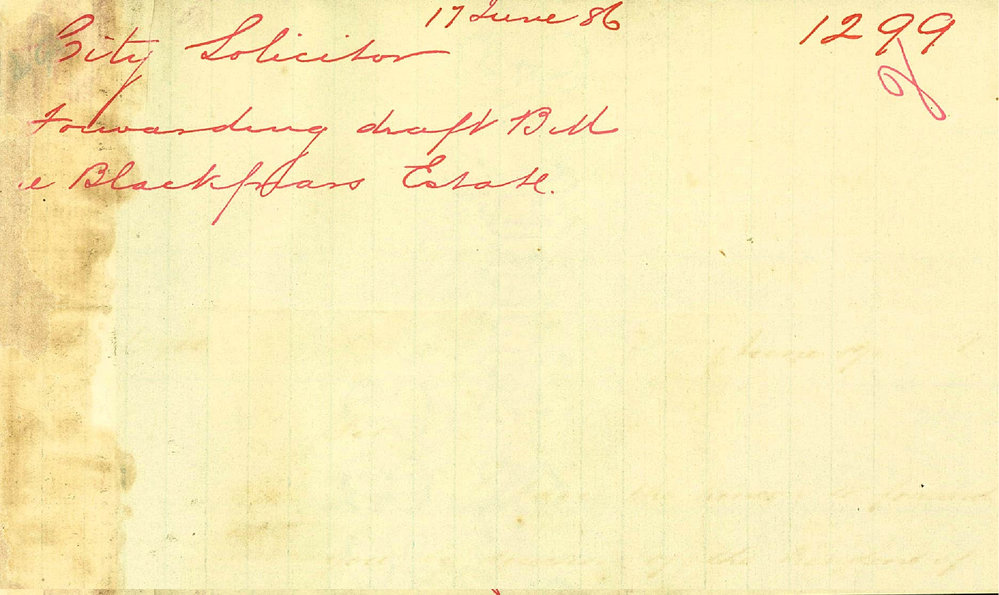 17 June 86
1299
City Solicitor
Forwarding draft Bill
e Blackfriars Estate.